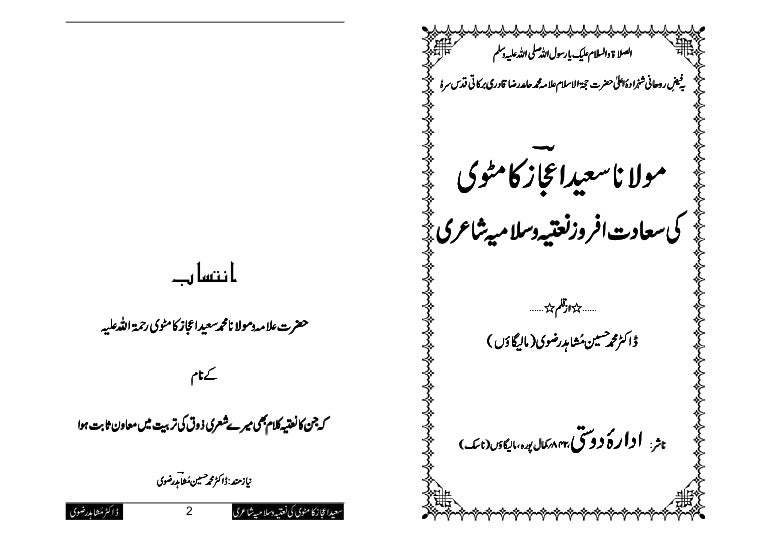 الصلاۃ والسلام علیک یارسول اللہ صلی اللہ علیہ وسلم
بہ فیضِ روحانی شہزادۂ اعلیٰ حضرت حجۃ الاسلام علامہ محمد حامد رضا قادری برکاتی قدس سرہٗ
مولانا سعید اعجاز کامٹوی
کی سعادت افروز نعتیہ و سلامیہ شاعری
......☆از قلم☆......
ڈاکٹر محمد حسین مُشاہدؔ رضوی (مالیگاؤں)
ناشر: ادارۂ دوستی، کمال پورہ، مالیگاؤں (ناسک)
انتساب
حضرت علامہ و مولانا محمد سعید اعجاز کامٹوی رحمۃ اللہ علیہ
کے نام
کہ جن کا نعتیہ کلام بھی میرے شعری ذوق کی تربیت میں معاون ثابت ہوا
نیاز مند: ڈاکٹر محمد حسین مُشاہدؔ رضوی
سعید اعجاز کامٹوی کی نعتیہ و سلامیہ شاعری
2
ڈاکٹر مُشاہد رضوی